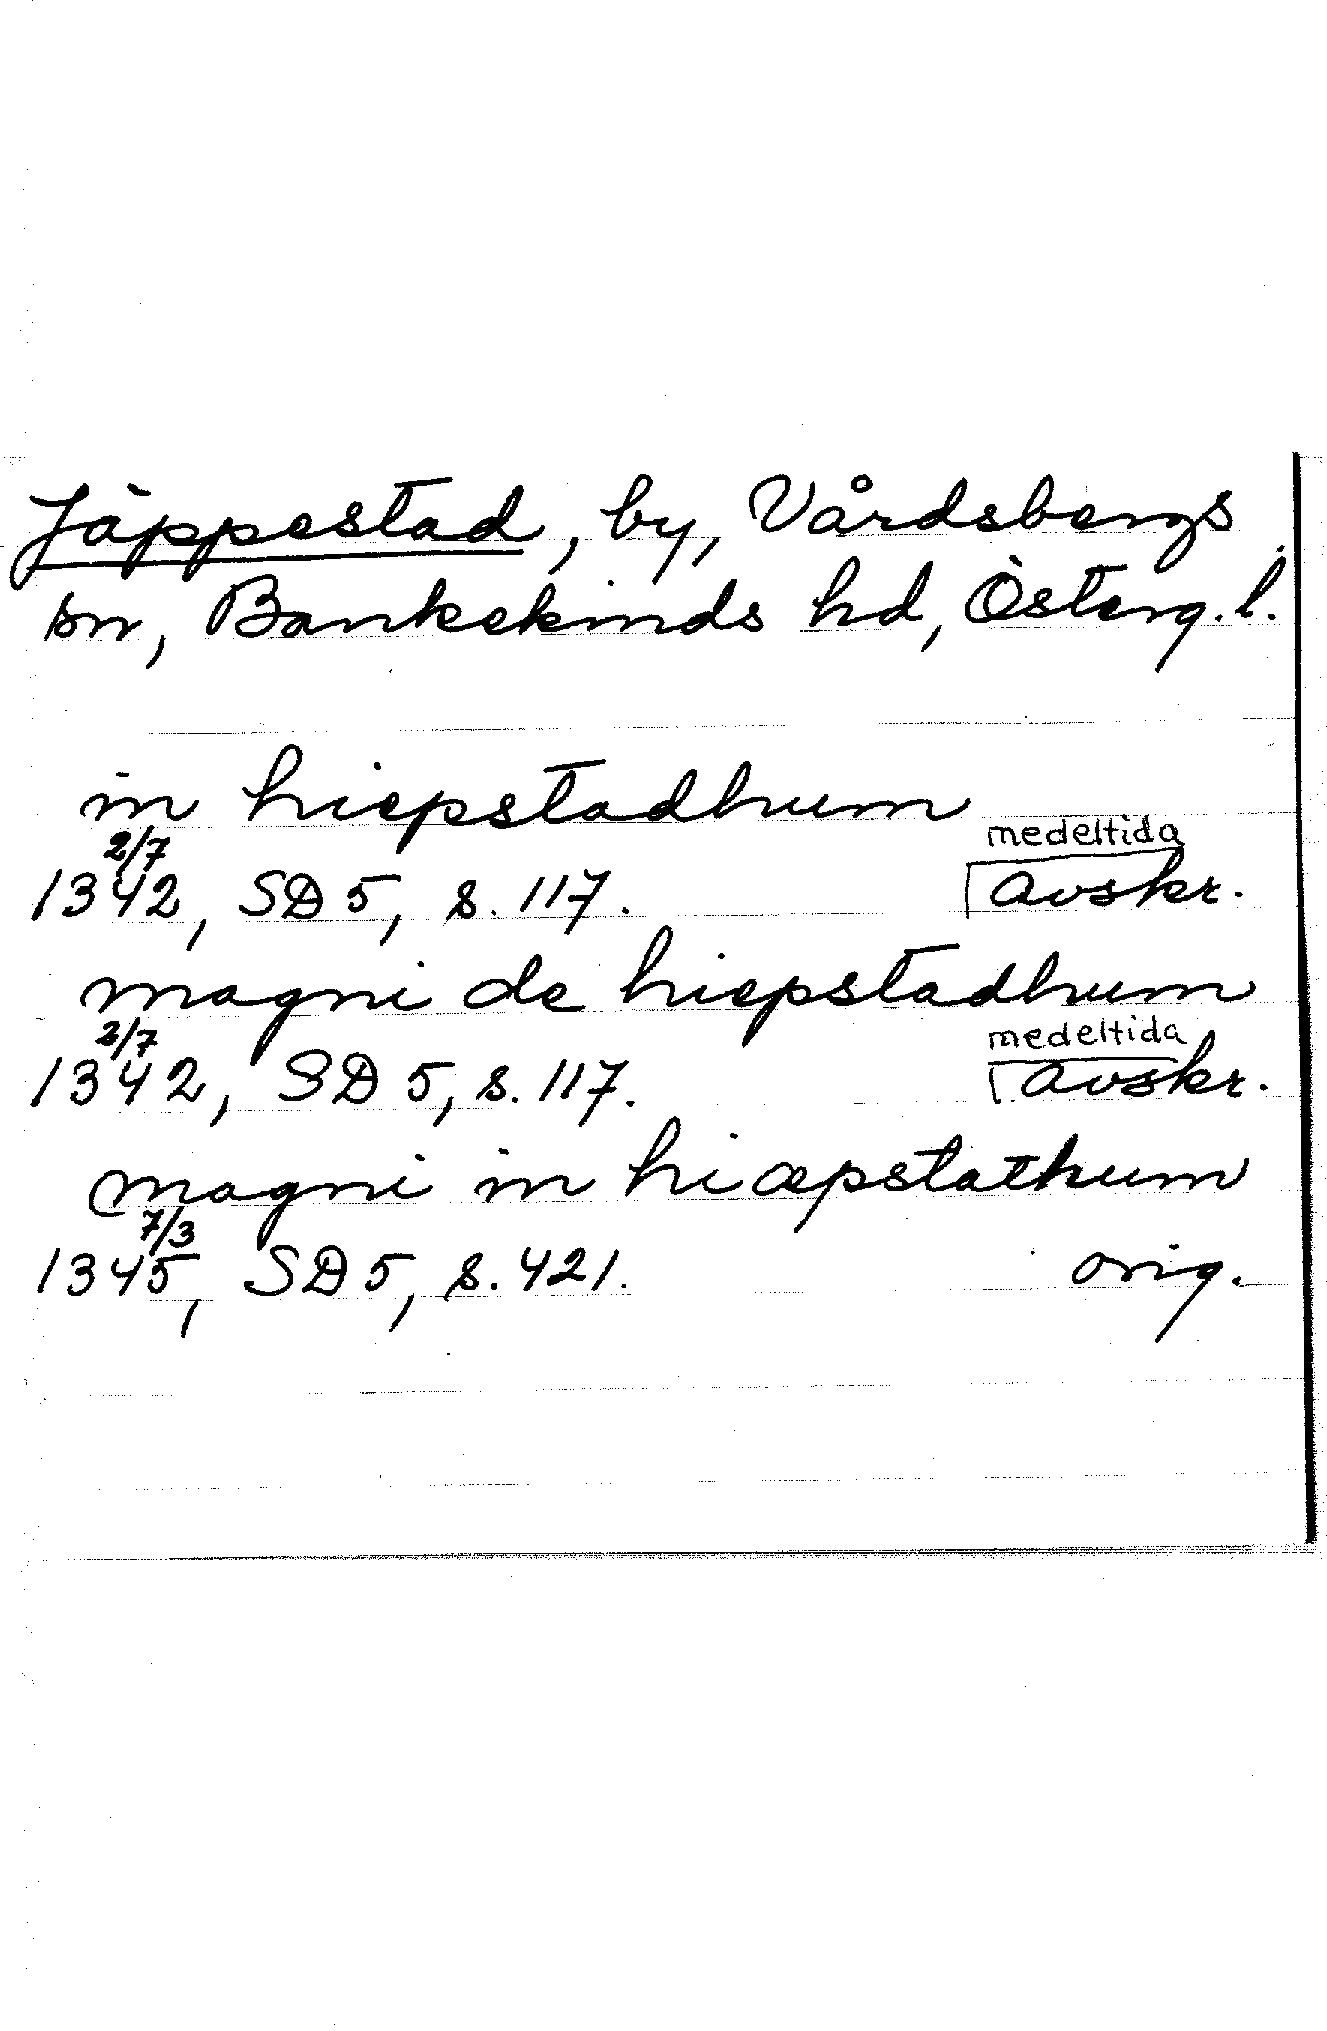 Jäppestad, by, Vårdsbergs
sn, Bankekinds hd, Österg.l.
in hiepstadhum
2/7 medeltida
1342, SD 5, s. 117. avskr.
magni de hiepstadhum
2/7 medeltida
1342, SD 5, s. 117. avskr.
magni in hiæpstathum
7/3
1345, SD 5, s. 421. orig.